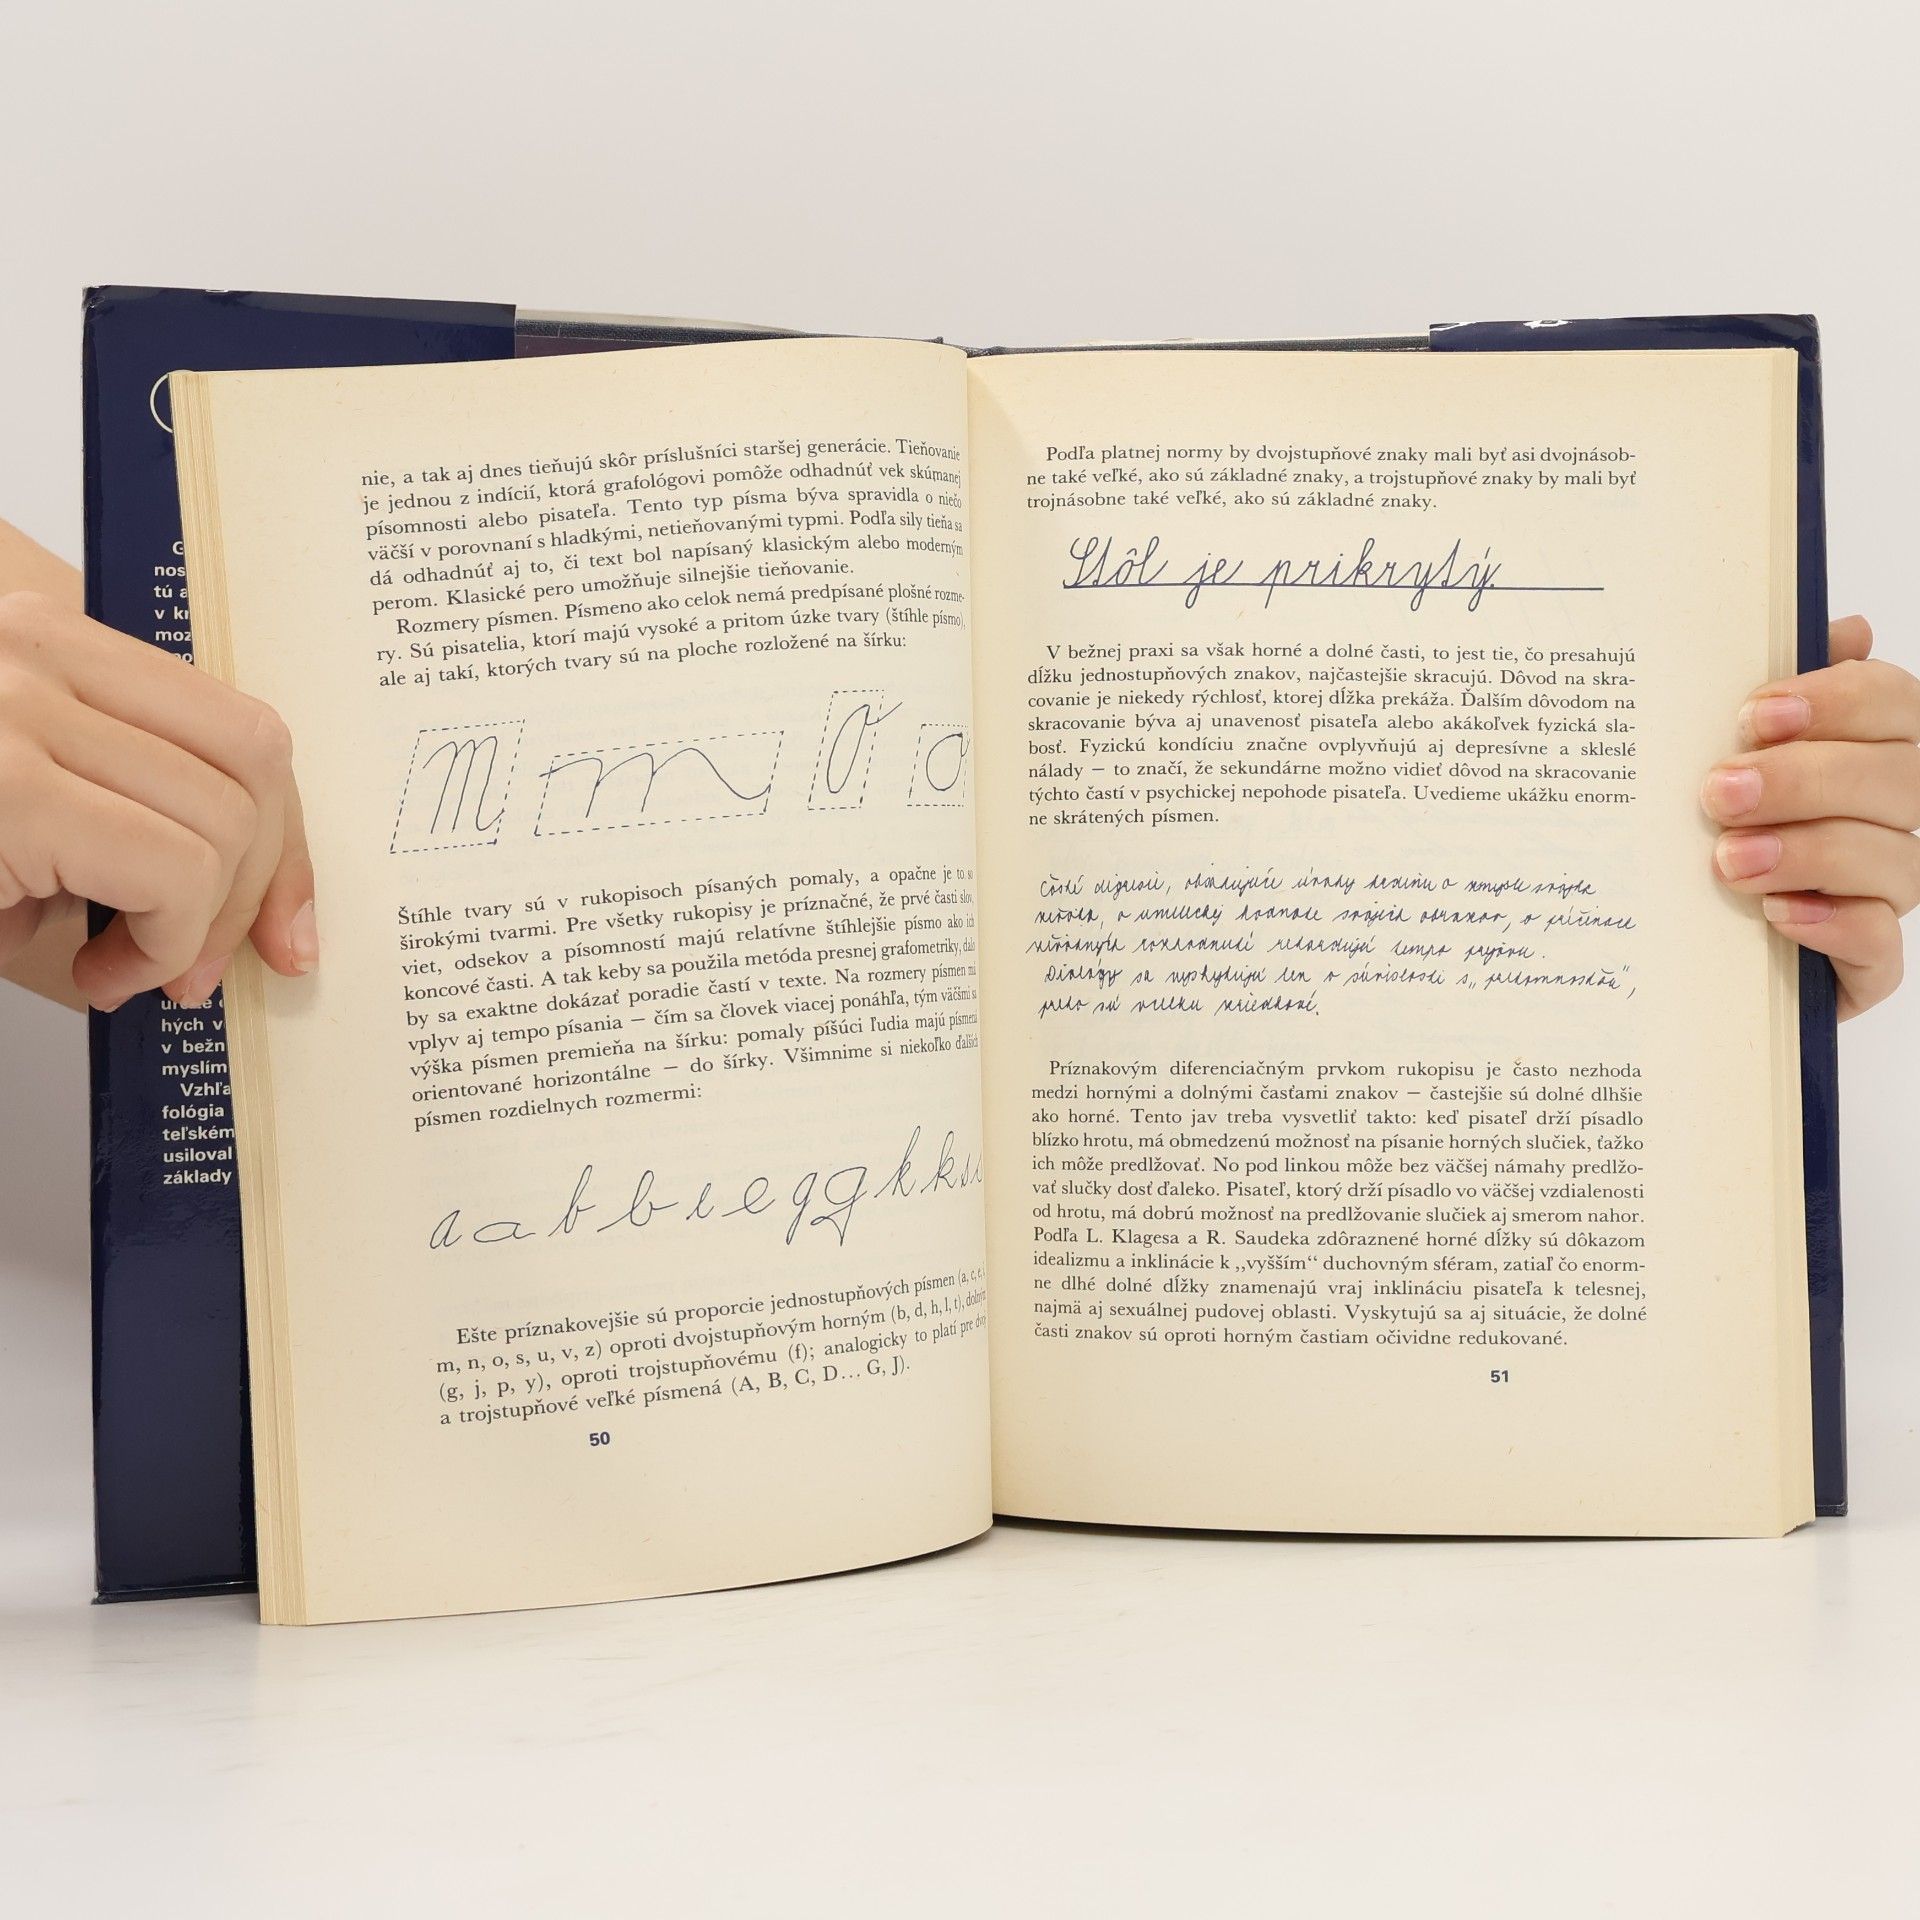 G
nos
tú a
v kr
moz
hých v
v bežn
myslím
Vzhľa
fológia
teľském
usiloval
základy
nie, a tak aj dnes tieňujú skôr príslušníci staršej generácie. Tieňovanie
je jednou z indícií, ktorá grafológovi pomôže odhadnúť vek skúmanej
písomnosti alebo pisateľa. Tento typ písma býva spravidla o niečo
väčší v porovnaní s hladkými, netieňovanými typmi. Podľa sily tieňa sa
dá odhadnúť aj to, či text bol napísaný klasickým alebo moderným
perom. Klasické pero umožňuje silnejšie tieňovanie.
Rozmery písmen. Písmeno ako celok nemá predpísané plošné rozme-
ry. Sú pisatelia, ktorí majú vysoké a pritom úzke tvary (štíhle písmo),
ale aj takí, ktorých tvary sú na ploche rozložené na šírku:
m m a a
Štíhle tvary sú v rukopisoch písaných pomaly, a opačne je to so
širokými tvarmi. Pre všetky rukopisy je príznačné, že prvé časti slov,
viet, odsekov a písomností majú relatívne štíhlejšie písmo ako ich
koncové časti. A tak keby sa použila metóda presnej grafometrie, dalo
by sa exaktne dokázať poradie častí v texte. Na rozmery písmen má
vplyv aj tempo písania – čím sa človek viacej ponáhľa, tým väčšmi sa
výška písmen premieňa na šírku: pomaly píšúci ľudia majú písmená
orientované horizontálne – do šírky. Všimnime si niekoľko ďalších
písmen rozdielnych rozmermi:
a a b b e e g g k k s s
Ešte príznakovejšie sú proporcie jednostupňových písmen (a, c, e, i,
m, n, o, s, u, v, z) oproti dvojstupňovým horným (b, d, h, l, t), dolným
(g, j, p, y), oproti trojstupňovému (f); analogicky to platí pre dvoj-
a trojstupňové veľké písmená (A, B, C, D… G, J).
50
Podľa platnej normy by dvojstupňové znaky mali byť asi dvojnásob-
ne také veľké, ako sú základné znaky, a trojstupňové znaky by mali byť
trojnásobne také veľké, ako sú základné znaky.
Stôl je prikrytý.
V bežnej praxi sa však horné a dolné časti, to jest tie, čo presahujú
dĺžku jednostupňových znakov, najčastejšie skracujú. Dôvod na skra-
covanie je niekedy rýchlosť, ktorej dĺžka prekáža. Ďalším dôvodom na
skracovanie býva aj unavenosť pisateľa alebo akákoľvek fyzická sla-
bosť. Fyzickú kondíciu značne ovplyvňujú aj depresívne a skleslé
nálady – to značí, že sekundárne možno vidieť dôvod na skracovanie
týchto častí v psychickej nepohode pisateľa. Uvedieme ukážku enorm-
ne skrátených písmen.
Časté digresie, obsahujúce úvahy hrdinu o zmysle svojho
života, o umeleckej hodnote svojich obrazov, o príčinách
retardujú tempo prózy.
Dialógy sa vyskytujú len v súvislosti s
preto sú vcelku zriedkavé.
Príznakovým diferenciačným prvkom rukopisu je často nezhoda
medzi hornými a dolnými časťami znakov – častejšie sú dolné dlhšie
ako horné. Tento jav treba vysvetliť takto: keď pisateľ drží písadlo
blízko hrotu, má obmedzenú možnosť na písanie horných slučiek, ťažko
ich môže predlžovať. No pod linkou môže bez väčšej námahy predlžo-
vať slučky dosť ďaleko. Pisateľ, ktorý drží písadlo vo väčšej vzdialenosti
od hrotu, má dobrú možnosť na predlžovanie slučiek aj smerom nahor.
Podľa L. Klagesa a R. Saudeka zdôraznené horné dĺžky sú dôkazom
idealizmu a inklinácie k ,,vyšším‘‘ duchovným sféram, zatiaľ čo enorm-
ne dlhé dolné dĺžky znamenajú vraj inklináciu pisateľa k telesnej,
najmä aj sexuálnej pudovej oblasti. Vyskytujú sa aj situácie, že dolné
časti znakov sú oproti horným častiam očividne redukované.
51